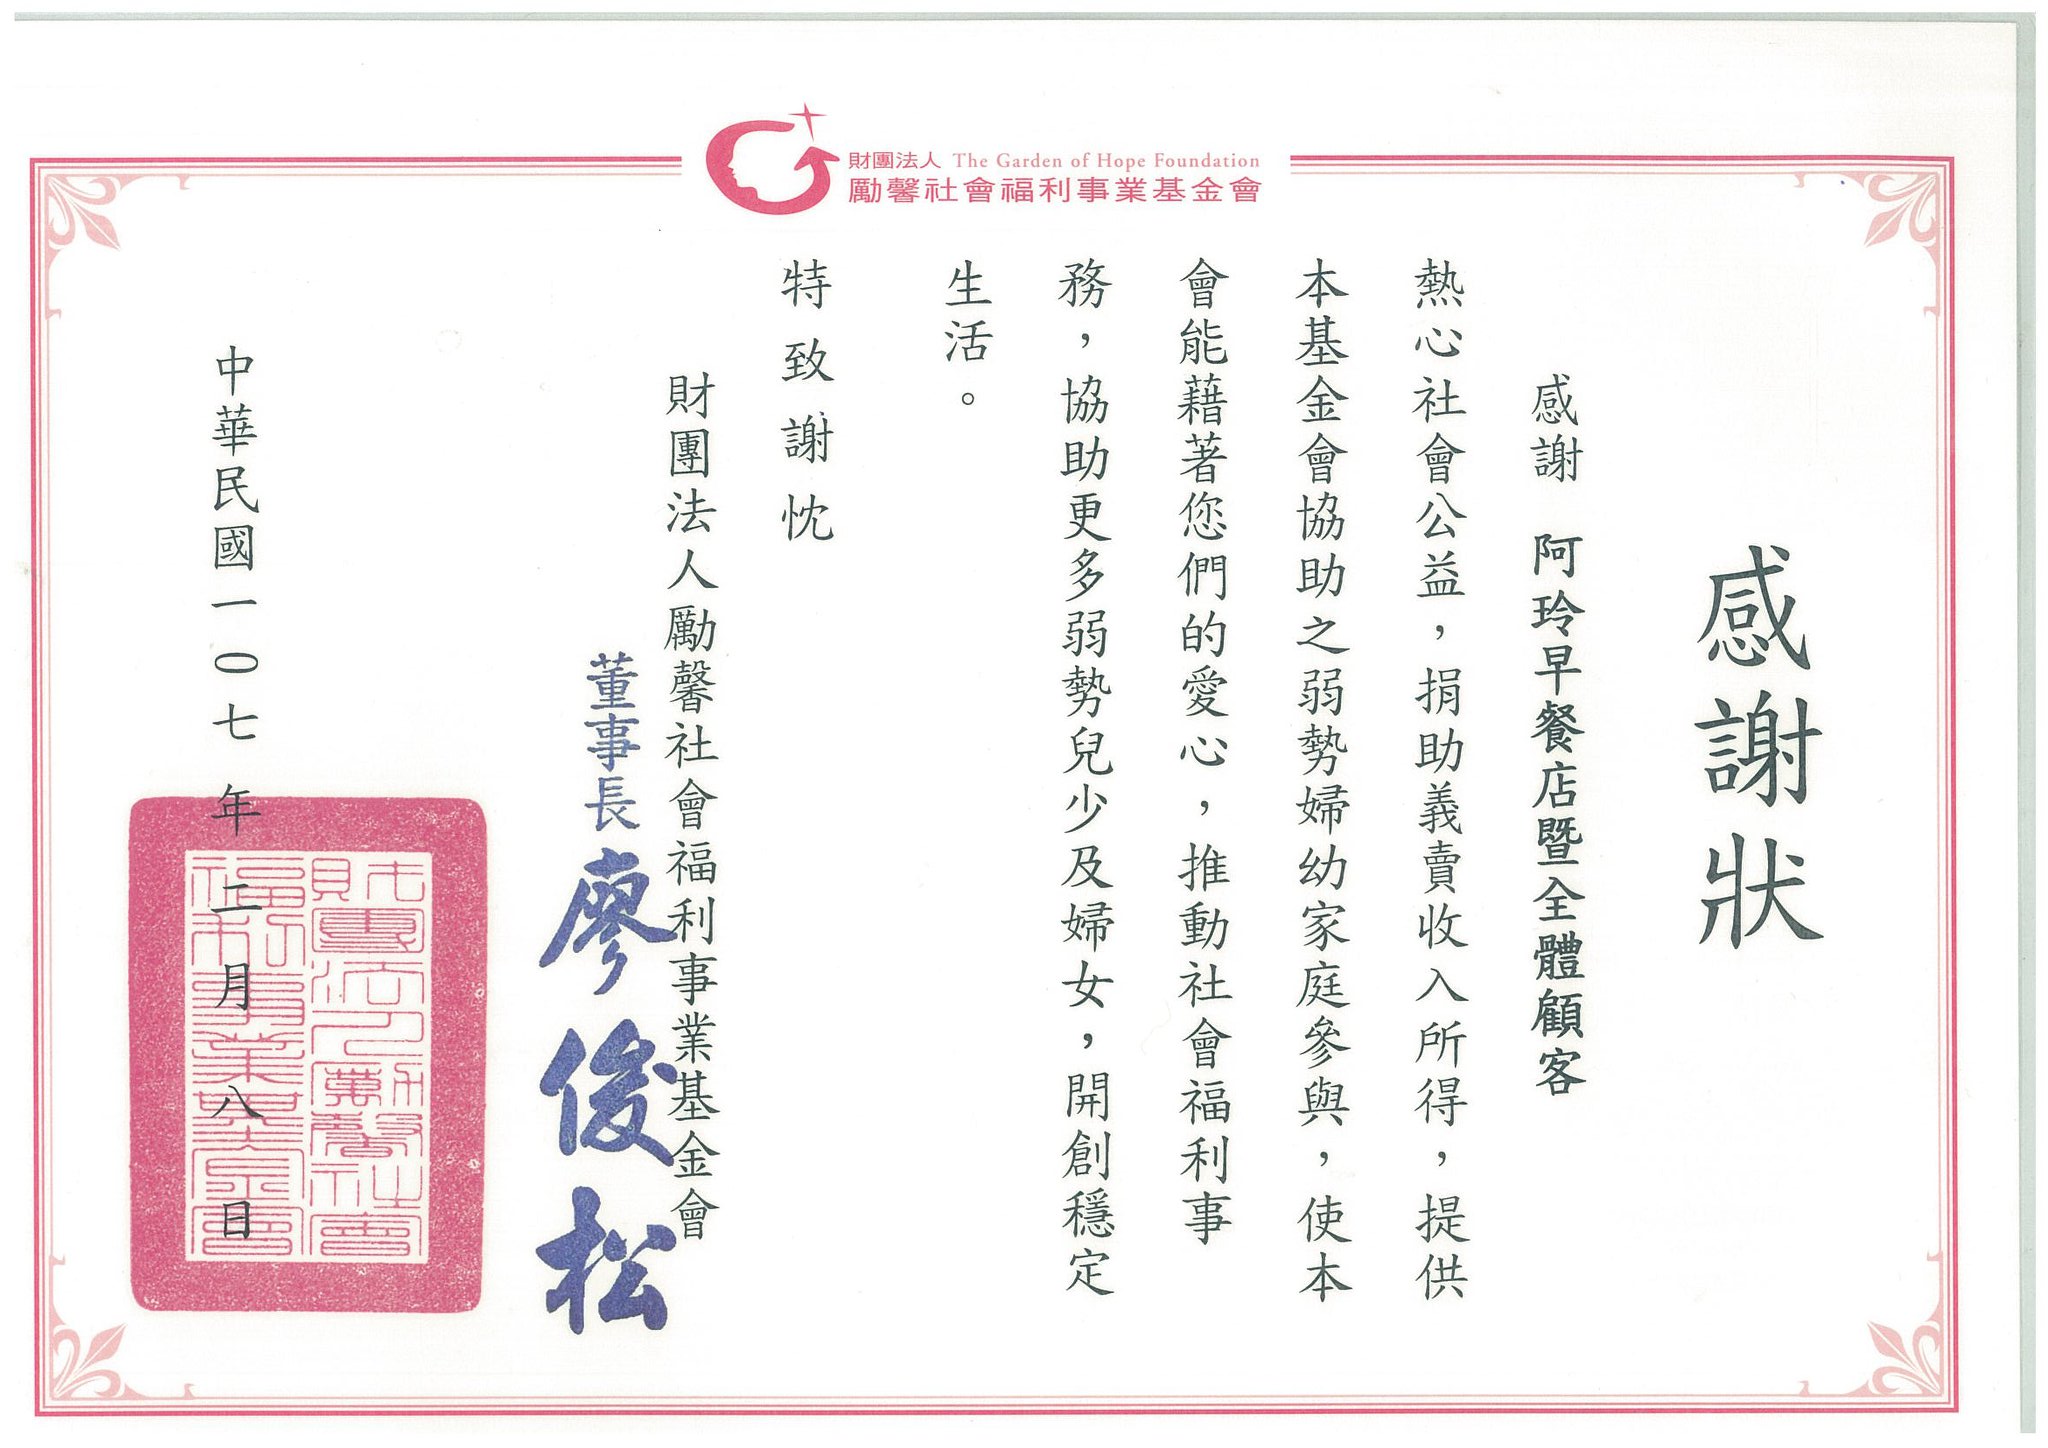 財團法人 The Garden of Hope Foundation
勵馨社會福利事業基金會
感謝狀
感謝 阿玲早餐店暨全體顧客
熱心社會公益，捐助義賣收入所得，提供
本基金會協助之弱勢婦幼家庭參與，使本
會能藉著您們的愛心，推動社會福利事
務，協助更多弱勢兒少及婦女，開創穩定
生活。
特致謝忱
財團法人勵馨社會福利事業基金會
董事長 廖俊松
中華民國一〇七年二月八日
財團法人勵馨社會
福利事業基金會